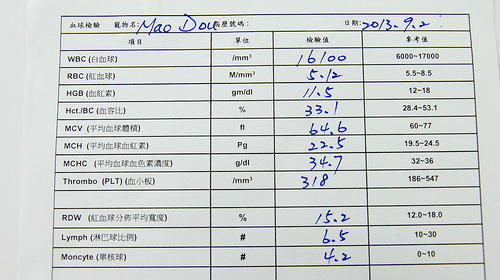 血球檢驗 寵物名: Mao Dou 病歷號碼: 日期: 2013.9.2
項目 單位 檢驗值 參考值
WBC (白血球) /mm³ 16100 6000~17000
RBC (紅血球) M/mm³ 5.12 5.5~8.5
HGB (血紅素) gm/dl 11.5 12~18
Hct./BC (血容比) % 33.1 28.4~53.1
MCV (平均血球體積) fl 64.6 60~77
MCH (平均血球血紅素) Pg 22.5 19.5~24.5
MCHC (平均血球血色素濃度) g/dl 34.7 32~36
Thrombo (PLT) (血小板) /mm³ 318 186~547
RDW (紅血球分佈平均寬度) % 15.2 12.0~18.0
Lymph (淋巴球比例) # 6.5 10~30
Moncyte (單核球) # 4.2 0~10